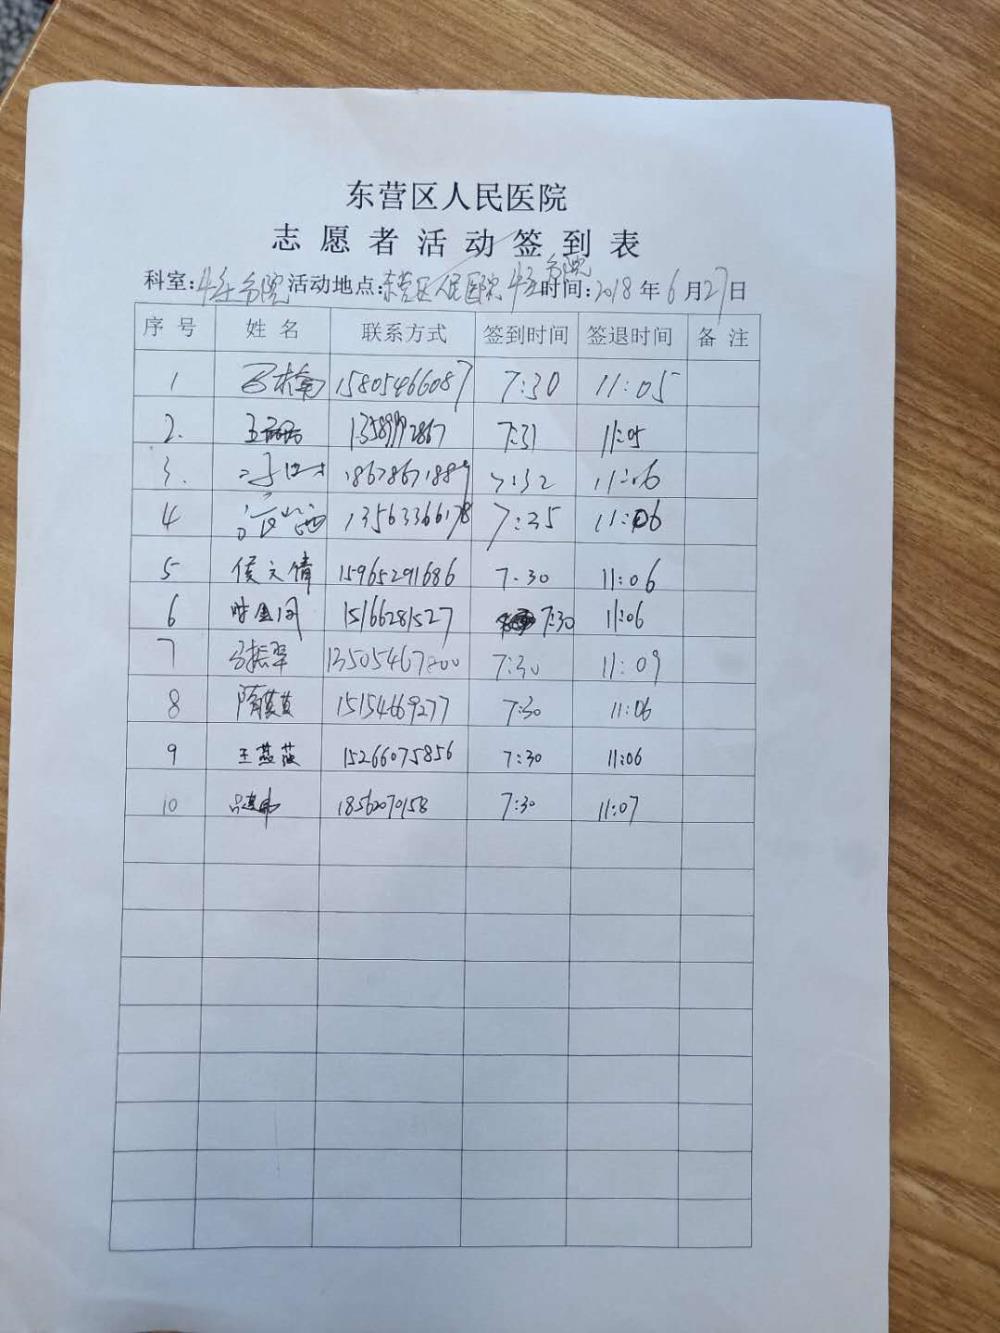 东营区人民医院
志愿者活动签到表
科室: 分院 活动地点: 东营区人民医院 分院 时间: 2018年6月27日
序号 姓名 联系方式 签到时间 签退时间 备注
1 15805466087 7:30 11:05
2. 7:31 11:05
3. 7:32 11:06
4 13563366178 7:35 11:06
5 侯文倩 15965291686 7.30 11:06
6 15166281527 7:30 11:06
7 马振翠 13505467800 7:30 11:09
8 隋 15154669277 7:30 11:06
9 王燕燕 15266075856 7:30 11:06
10 吕建伟 18562070158 7:30 11:07